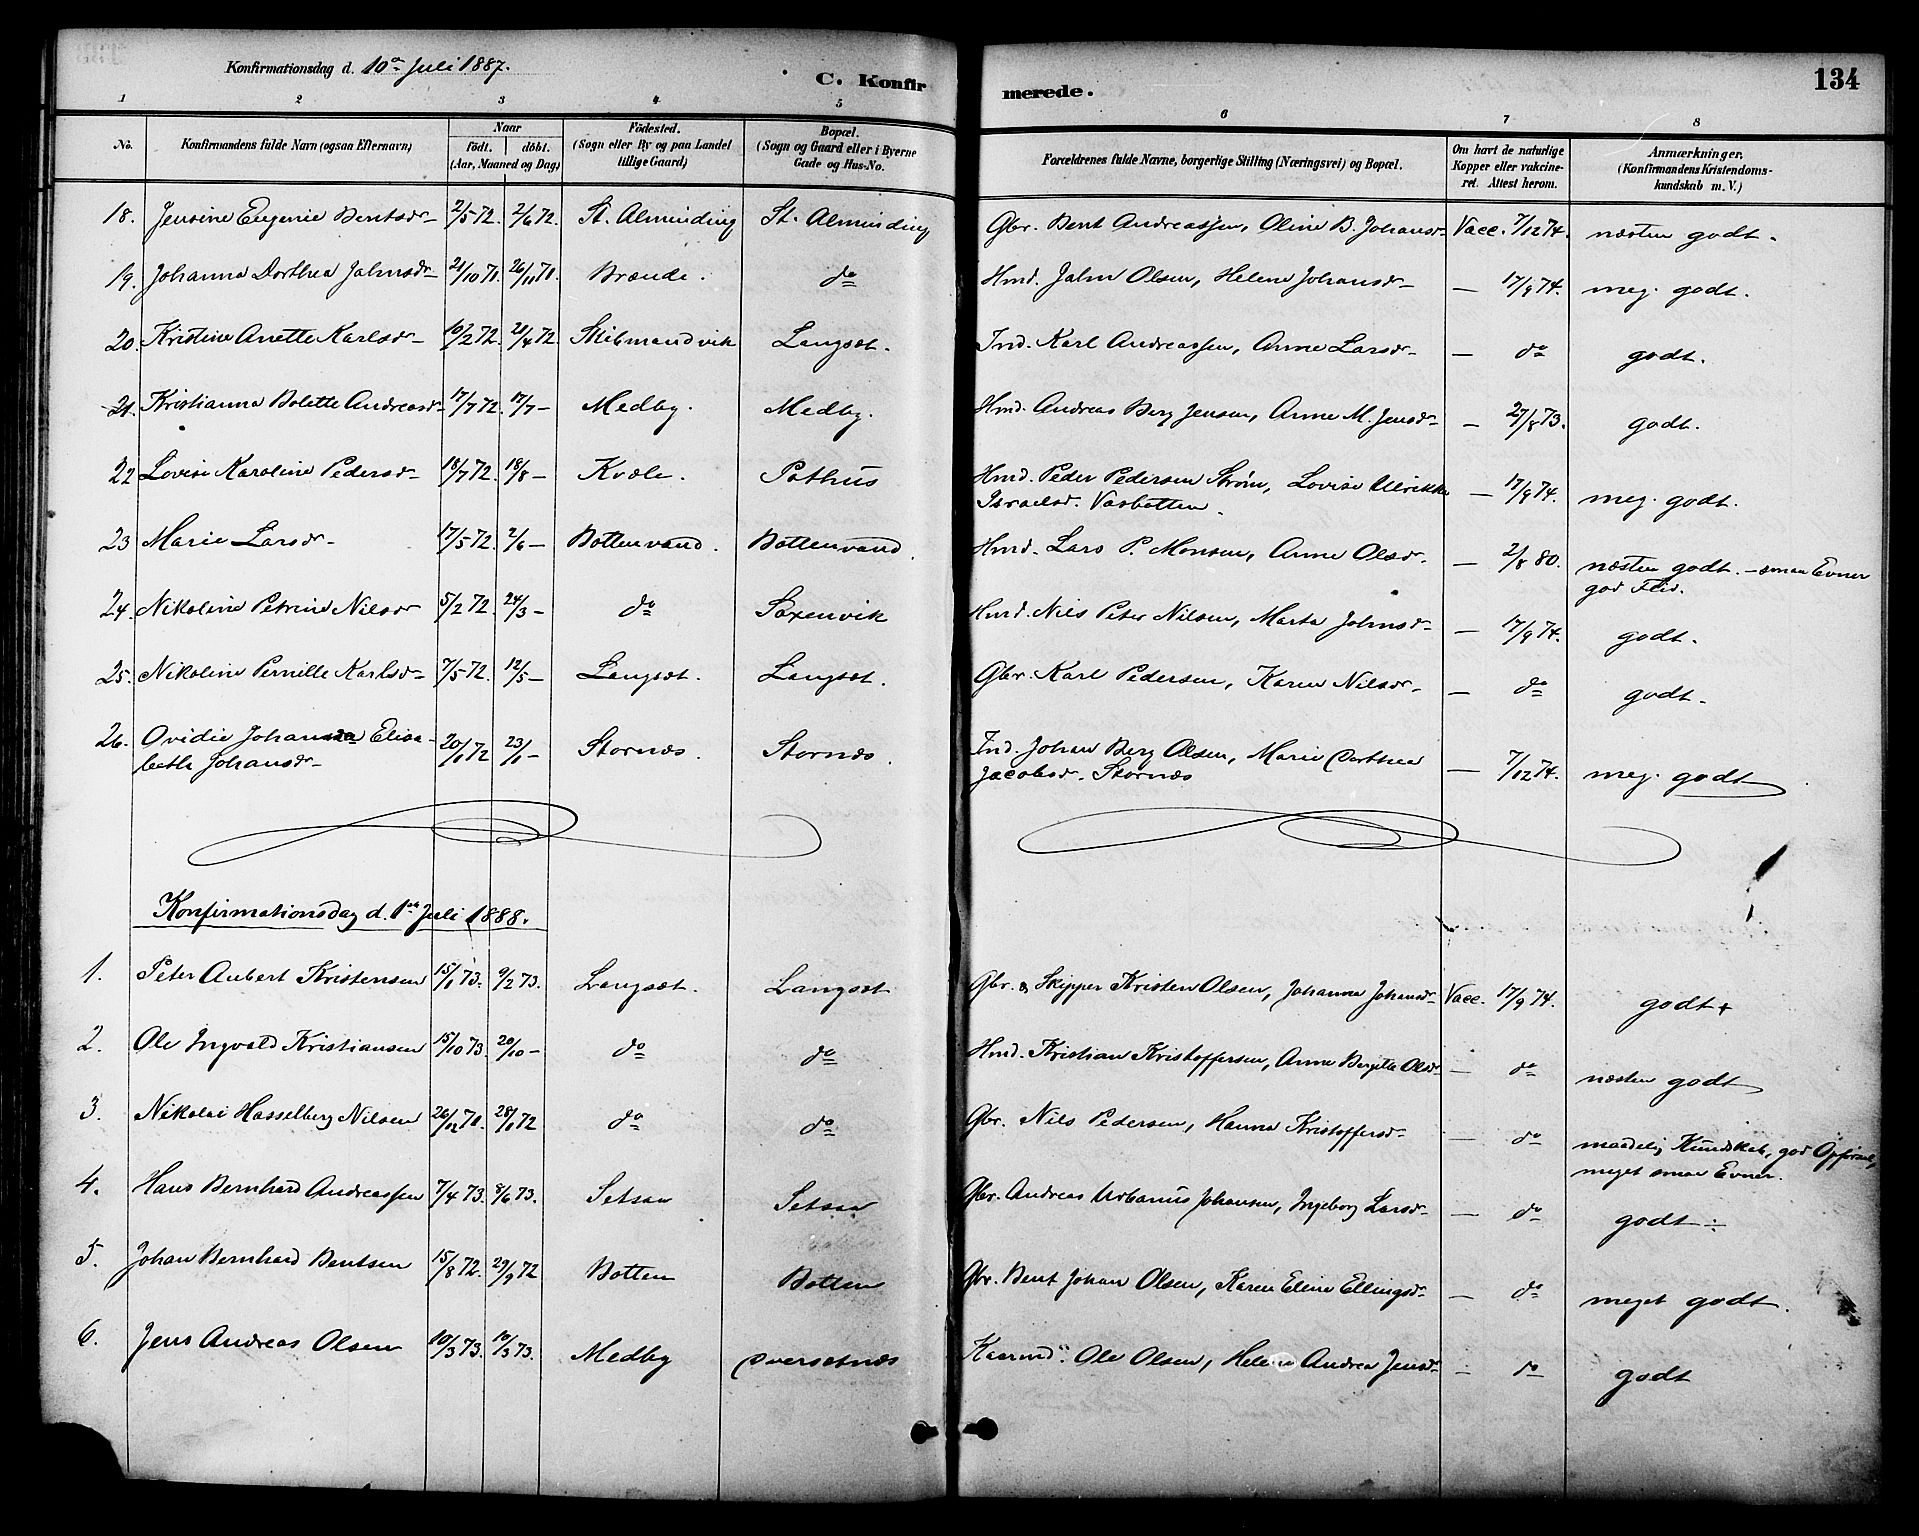 Konfirmationsdag d. 10de Juli 1887.
C. Konfirmerede.
134
1 2 3 4 5 6 7 8
No. Konfirmandens fulde Navn (ogsaa Efternavn) Naar födt. döbt. (Aar, Maaned og Dag) Födested. (Sogn eller By og paa Landet tillige Gaard) Bopæl. (Sogn og Gaard eller i Byerne Gade og Hus-No. Forældrenes fulde Navne, borgerlige Stilling (Næringsvei) og Bopæl. Om havt de naturlige Kopper eller vakcineret. Attest herom. Anmærkninger. (Konfirmandens Kristendomskundskab m. V.)
18. Jensine Eugenie Bentsdr 2/5 72. 2/6 72. St. Alminding St. Alminding Gbr. Bent Andreassen, Oline B. Johansdr Vacc. 7/12 74. næsten godt.
19. Johanna Dorthea Jahnsdr 21/10 71. 26/11 71. Brænde. do Hmd. Jahn Olsen, Helene Johansdr — 17/9 74. meg. godt.
20. Kristine Anette Karlsdr 10/2 72. 21/4 72. Skibmandvik Langset. Ind. Karl Andreassen, Anne Larsdr — do godt.
21. Kristianna Bolette Andreasdr 17/7 72. 17/7 — Medby. Medby. Hmd. Andreas Berg Jensen, Anne M. Jensdr — 27/8 73. godt.
22 Lovise Karoline Pedersdr 18/7 72. 18/8 — Kvæle. Pothus Hmd. Peder Pedersen Strøm, Lovise Ulrikke
Israelsd. Vasbotten. — 17/9 74. meg. godt.
23 Marie Larsdr 17/5 72. 2/6 — Bottenvand. Bottenvand. Hmd. Lars P. Monsen, Anne Olsdr. — 2/8 80. næsten godt. — smaa Evner
god Flid.
24. Nikoline Petrine Nilsdr 5/2 72. 24/3 — do Saxenvik Hmd. Nils Peter Nilsen, Marta Johnsdr — 17/9 74. godt.
25. Nikoline Pernille Karlsdr 7/5 72. 12/5 — Langset. Langset. Gbr. Karl Pedersen, Karen Nilsdr. — do godt.
26. Ovidie Johanna Elisa-
beth Johansdr 20/1 72 23/1 — Stornæs Stornæs. Ind. Johan Berg Olsen, Marie Dorthea
Jacobsdr. Stornæs — 7/12 74. meg. godt
Konfirmationsdag d. 1ste Juli 1888.
1. Peter Aubert Kristensen 15/1 73. 9/2 73. Langset. Langset Gbr. & Skipper Kristen Olsen, Johanna Johansdr Vacc. 17/9 74. godt +
2. Ole Ingvald Kristiansen 15/10 73. 20/10 — do do Hmd. Kristian Kristoffersen, Anne Bergitte Olsdr — do næsten godt
3. Nikolai Hasselberg Nilsen 26/12 71. 28/1 72 do do Gbr. Nils Pedersen, Hanna Kristoffersdr — do maadelig Kundskab, god Opførsel,
meget smaa Evner.
4. Hans Bernhard Andreassen 7/4 73. 8/6 73. Setsaa Setsaa Gbr. Andreas Urbanus Johansen, Ingeborg Larsdr — do godt ÷
5. Johan Bernhard Bentsen 15/8 72. 29/9 72 Botten Botten Gbr. Bent Johan Olsen, Karen Eline Ellingsdr — do meget godt.
6. Jens Andreas Olsen 10/3 73. 10/3 73. Medby Oversetnæs Kaarmd. Ole Olsen, Helene Andrea Jensdr — do godt